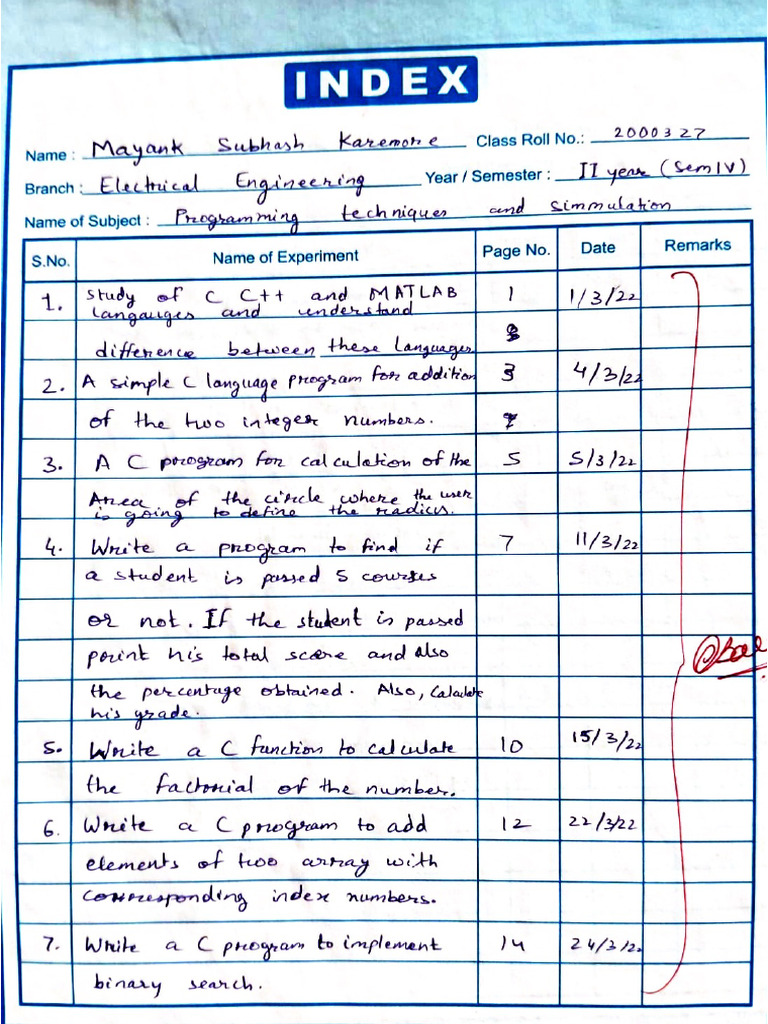 INDEX
Name : Mayank Subhash Karemore Class Roll No.: 2000327
Branch : Electrical Engineering Year / Semester : II year (Sem IV)
Name of Subject : Programming techniques and simmulation
S.No. Name of Experiment Page No. Date Remarks
1. Study of C C++ and MATLAB 1 1/3/22
langauges and understand
difference between these languages
2. A simple C language program for addition 3 4/3/22
of the two integer numbers.
3. A C program for calculation of the 5 5/3/22
Area of the circle where the user
is going to define the radius.
4. Write a program to find if 7 11/3/22
a student is passed 5 courses
or not. If the student is passed
print his total score and also
the percentage obtained. Also, Calculate
his grade.
5. Write a C function to calculate 10 15/3/22
the factorial of the number.
6. Write a C program to add 12 22/3/22
elements of two array with
corresponding index numbers.
7. Write a C program to implement 14 24/3/22
binary search.